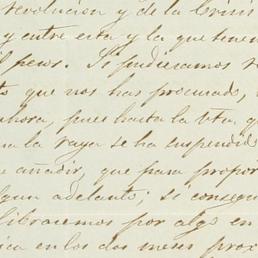 revolucion y de la Crisis
y entre esta y la que tenem
il pesos. Si pudieramos
to que nos has procurado,
ahora, pues hasta la fha. q
na la raya se ha suspendido
e añadir, que para propor
lgun adelanto; si conseg
libracemos por algo en
ica en los dos meses prox